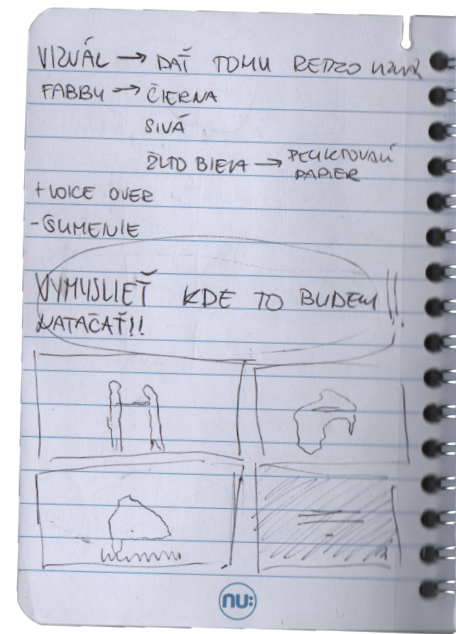 VIZUÁL → DAŤ TOMU RETRO
FARBY → ČIERNA
SIVÁ
ŽLTO BIELA →
PAPIER
+ VOICE OVER
- ŠUMENIE
VYMYSLIEŤ KDE TO BUDEM !!
NATÁČAŤ!!
nu: